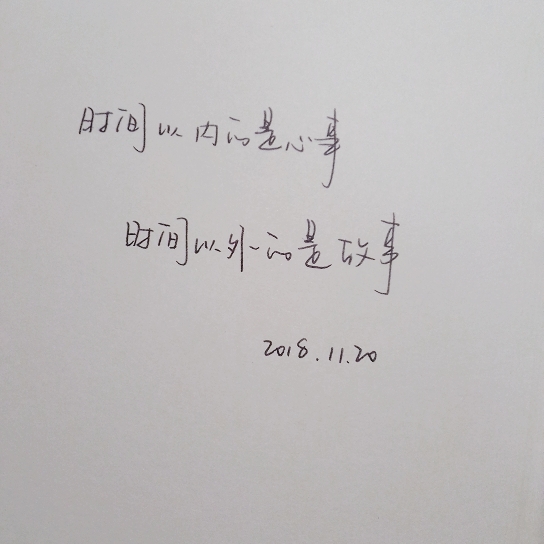 时间以内的是心事
时间以外的是故事
2018.11.20